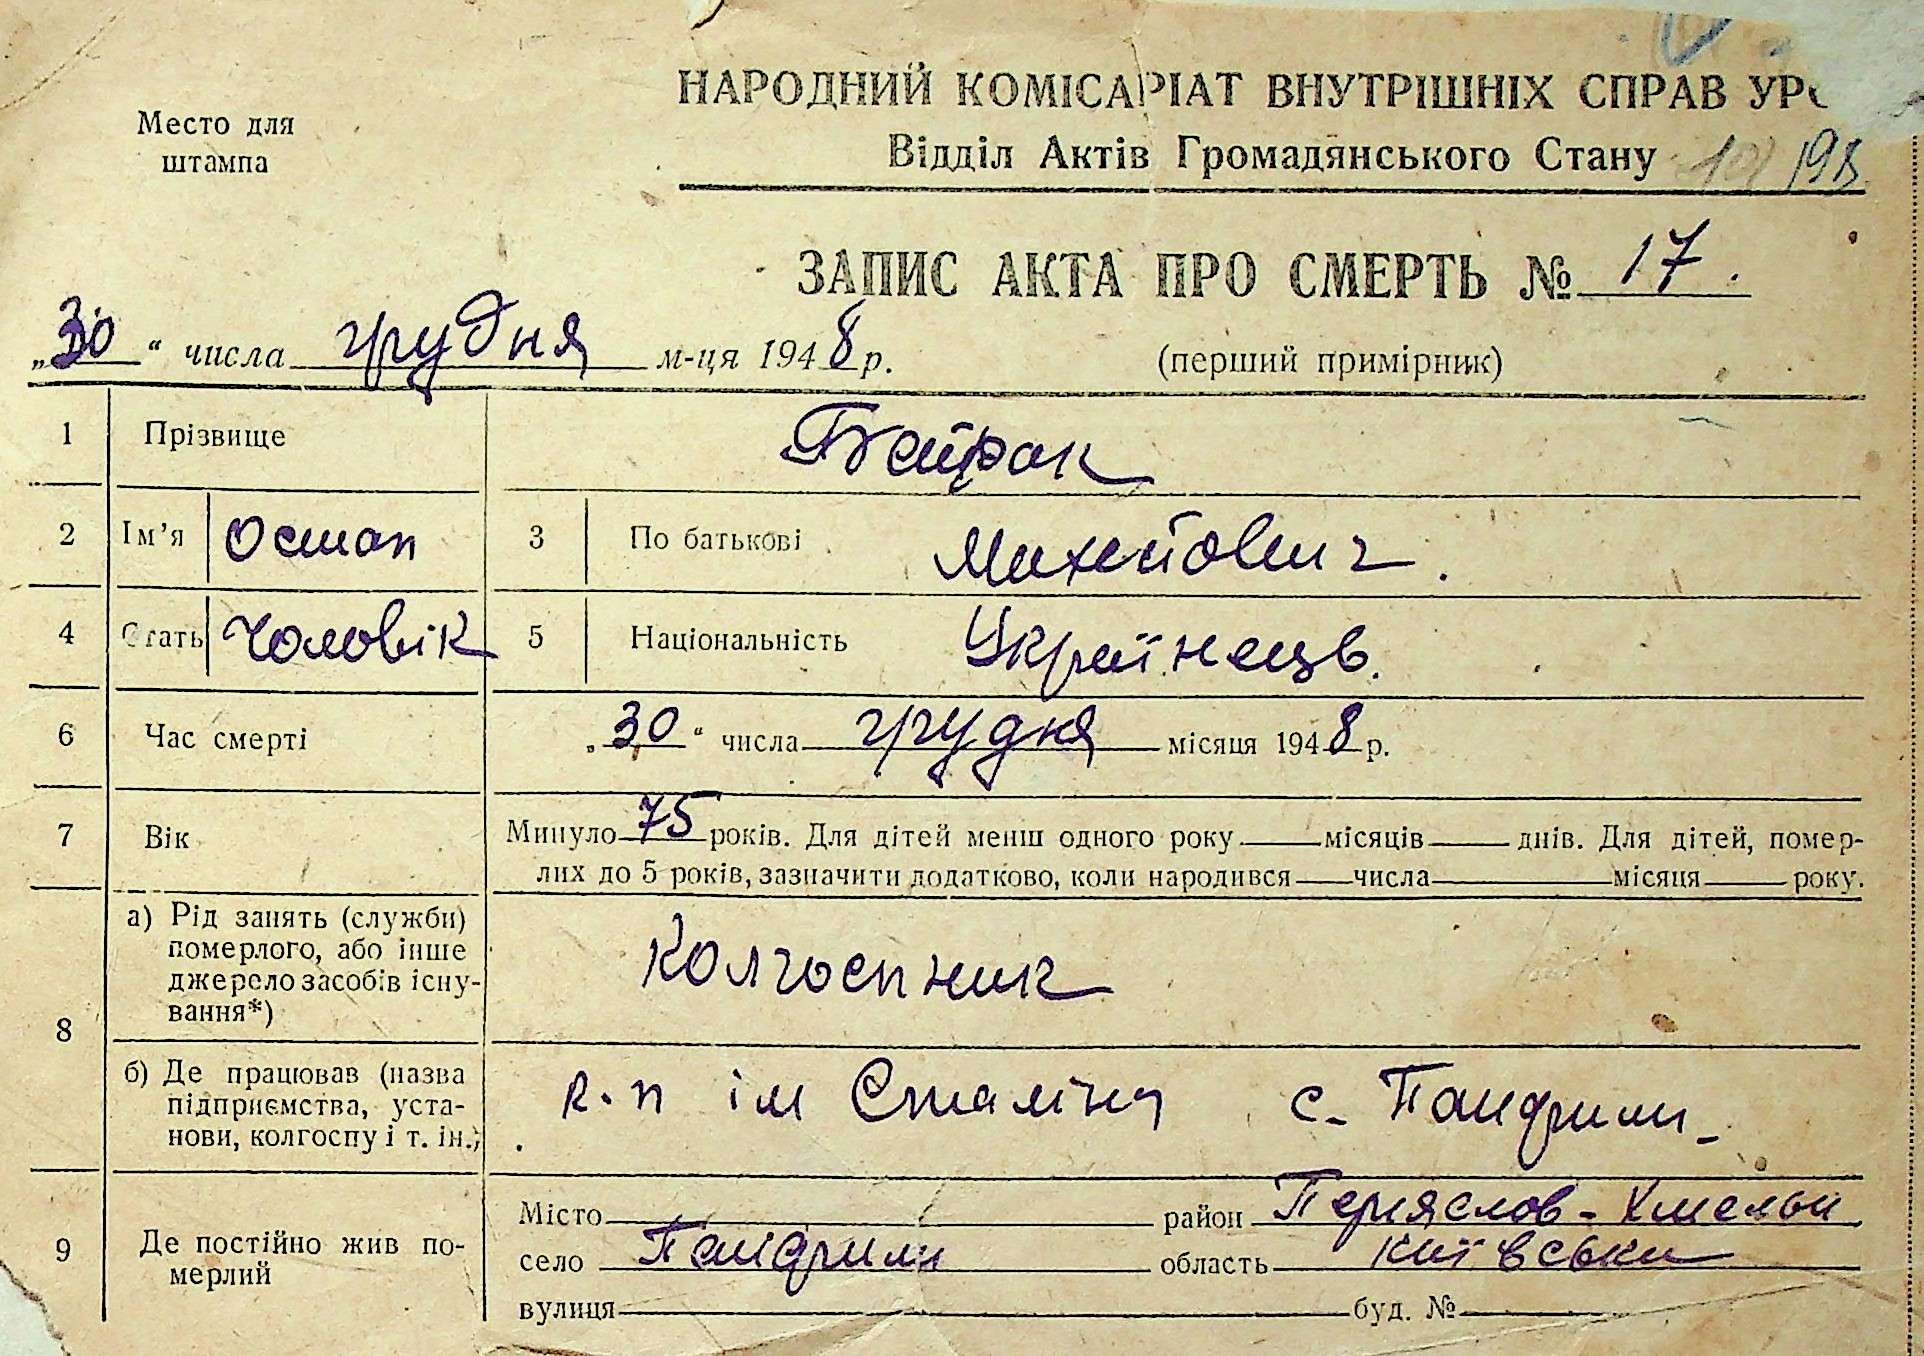 НАРОДНИЙ КОМІСАРІАТ ВНУТРІШНІХ СПРАВ УРС
Место для
штампа
Відділ Актів Громадянського Стану 198
ЗАПИС АКТА ПРО СМЕРТЬ № 17.
„30“ числа грудня м-ця 1948 р. (перший примірник)
1 Прізвище Байрак
2 Ім’я Остап 3 По батькові Михейович.
4 Стать Чоловік 5 Національність Українець.
6 Час смерті „30“ числа грудня місяця 1948 р.
7 Вік Минуло 75 років. Для дітей менш одного року місяців днів. Для дітей, помер-
лих до 5 років, зазначити додатково, коли народився числа місяця року.
8 а) Рід занять (служби)
померлого, або інше
джерело засобів існу-
вання*)
Колгоспник
б) Де працював (назва
підприємства, уста-
нови, колгоспу і т. ін.)
к.п ім Сталіна с.
9 Де постійно жив по-
мерлий
Місто район Переяслов-Хмельн
село область київська
вулиця буд. №